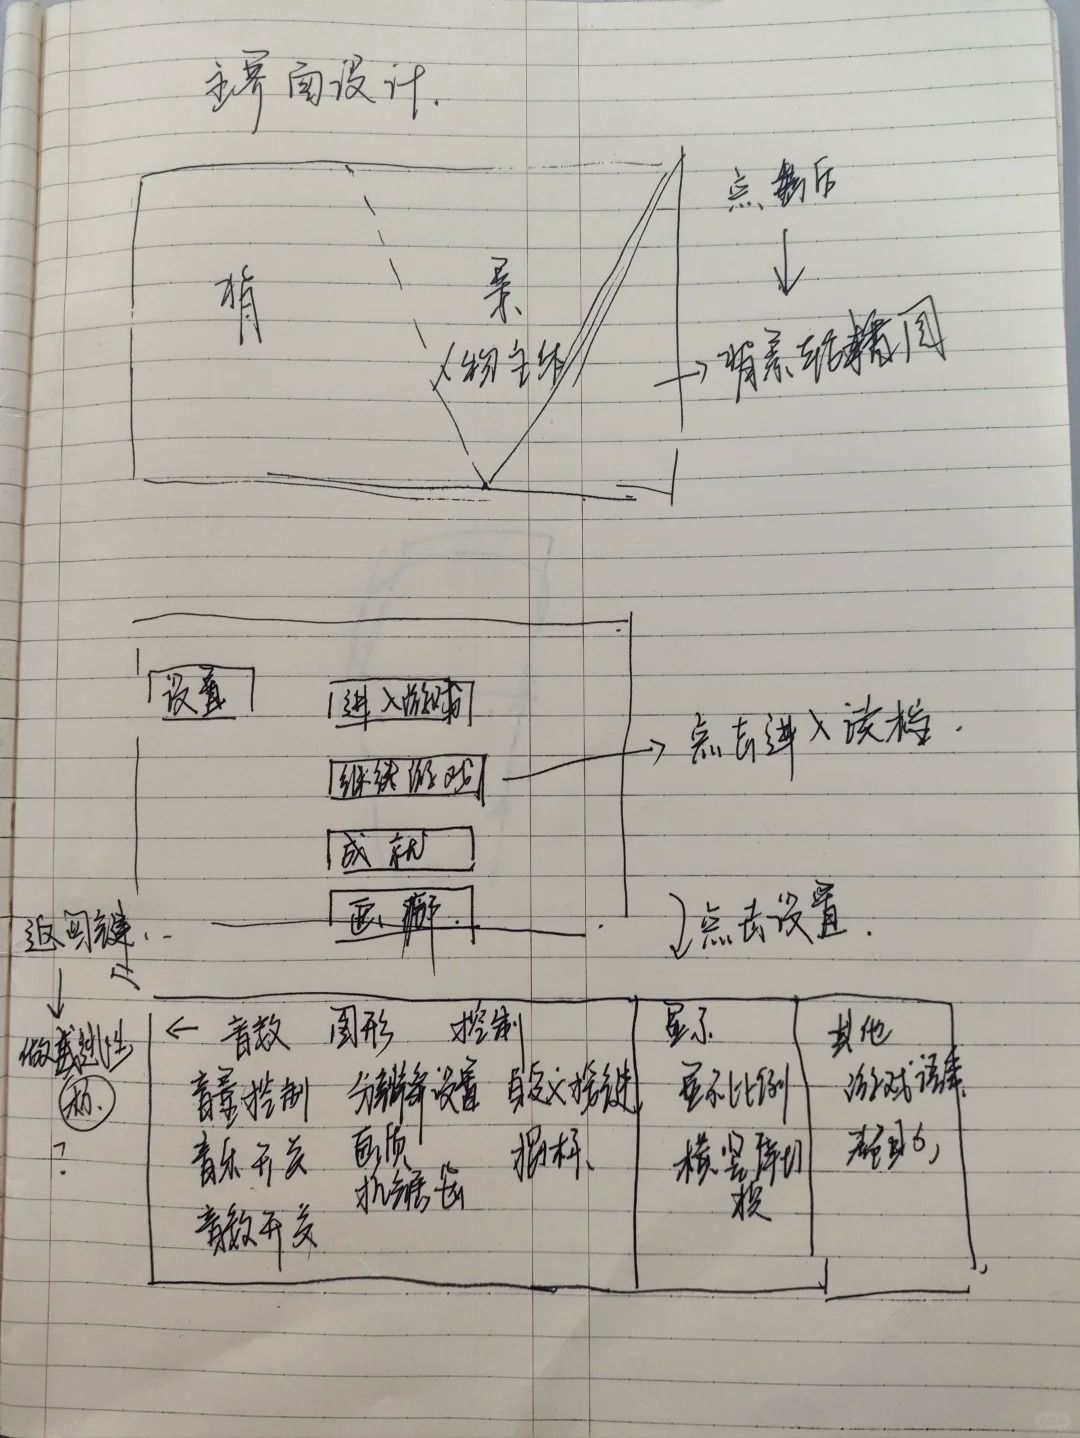 主界面设计.
点击后
背 景
人物主体
背景
设置
进入游戏
继续游戏
点击进入读档.
成就
画廊.
返回键..
点击设置.
做成
标.
?
← 音效 图形 控制 显示 其他
音量控制 分辨率设置 自定义按键 显示比例 游戏语库
音乐开关 画质 摇杆、 横竖屏切换
抗锯齿
音效开关